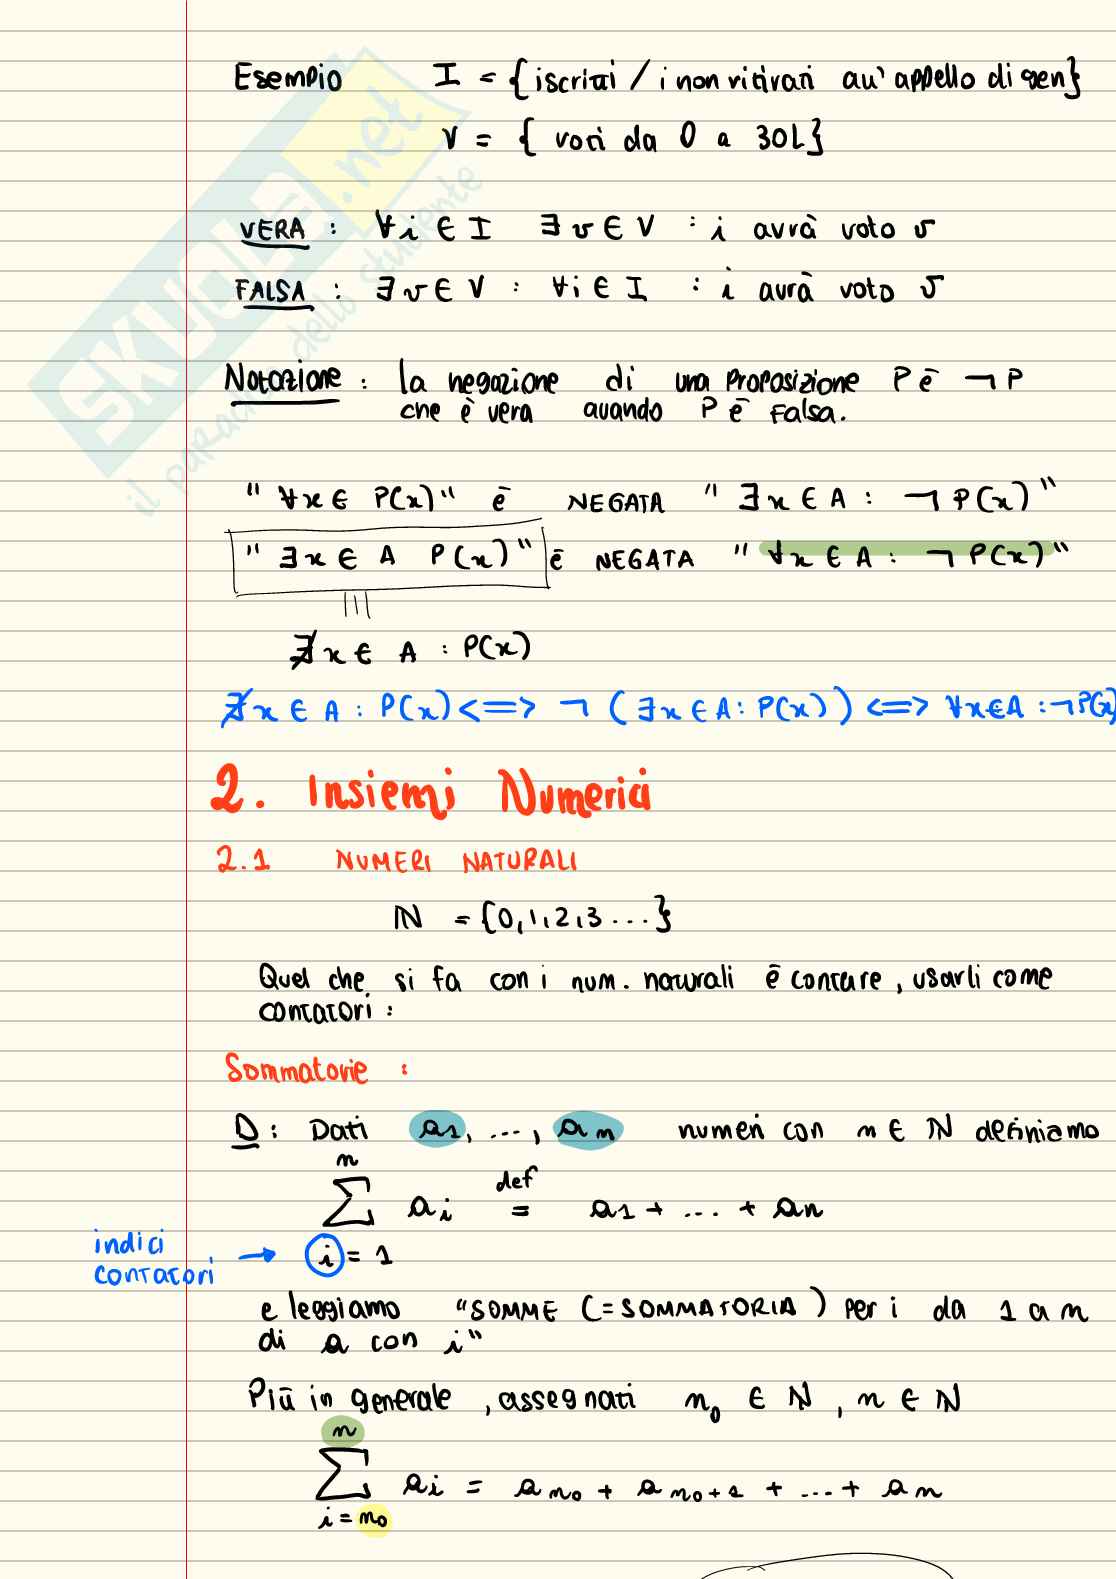 Esempio I = {iscritti / i non ritirati all'appello di gen}
V = { voti da 0 a 30L}
VERA : ∀i ∈ I ∃ v ∈ V : i avrà voto v
FALSA : ∃ v ∈ V : ∀i ∈ I : i avrà voto v
Notazione : la negazione di una proposizione P è ¬ P
che è vera quando P è falsa.
" ∀x ∈ P(x)" è NEGATA " ∃ x ∈ A : ¬ P(x)"
" ∃ x ∈ A P(x)" è NEGATA " ∀x ∈ A : ¬ P(x)"
|||
∄ x ∈ A : P(x)
∄ x ∈ A : P(x) <=> ¬ ( ∃ x ∈ A : P(x)) <=> ∀x∈A : ¬P(x)
2. Insiemi Numerici
2.1 NUMERI NATURALI
ℕ = {0,1,2,3 ...}
Quel che si fa con i num. naturali è contare, usarli come
contatori :
Sommatorie :
D : Dati a1, ..., an numeri con n ∈ ℕ definiamo
n
∑ ai def = a1 + ... + an
indici contatori → i = 1
e leggiamo "SOMME (=SOMMATORIA) per i da 1 a n
di a con i"
Più in generale, assegnati n0 ∈ ℕ, n ∈ ℕ
n
∑ ai = an0 + an0+1 + ... + an
i = n0
SKUOLA.net
il paradiso dello studente